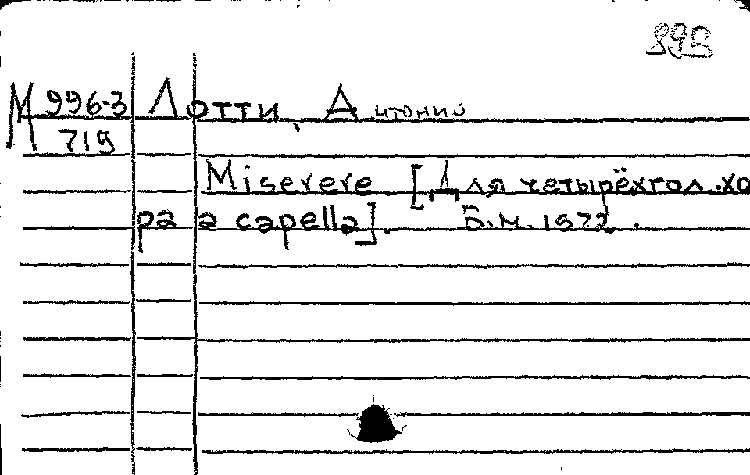 М 996-3 Лотти, Антонио
719
Miserere [Для четырёхгол. хо
ра a capella]. Б.м. 1972.